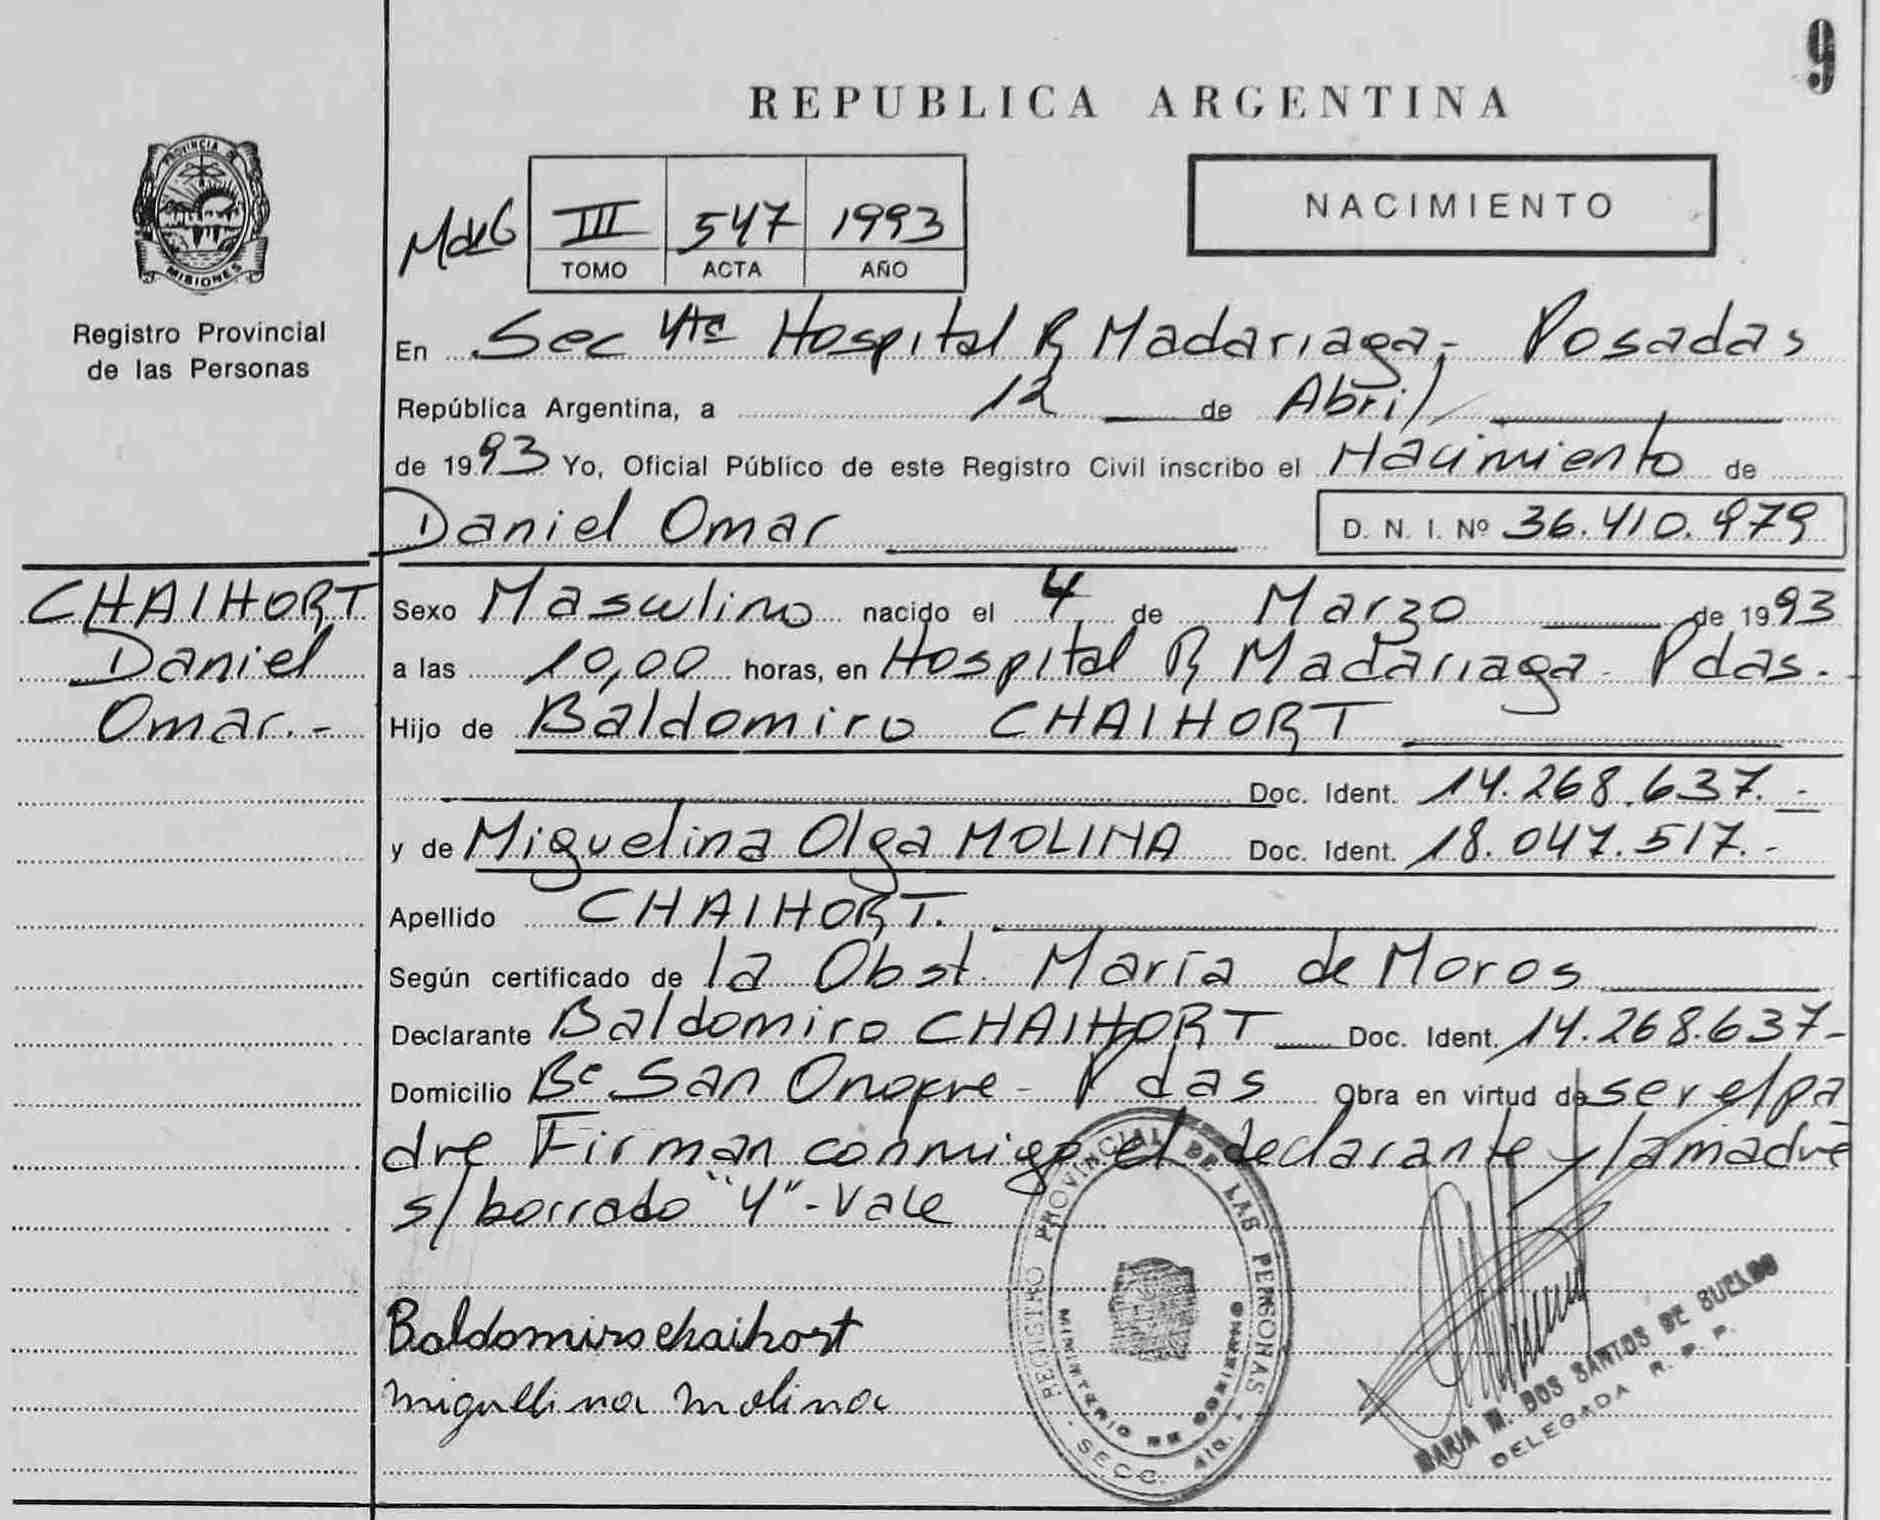 9
REPUBLICA ARGENTINA
PROVINCIA DE
MISIONES
Registro Provincial
de las Personas
III 547 1993
TOMO ACTA AÑO
NACIMIENTO
En Sec 4ta Hospital R Madariaga,- Posadas
República Argentina, a 12 de Abril
de 1993 Yo, Oficial Público de este Registro Civil inscribo el Nacimiento de
Daniel Omar D. N. I. Nº 36.410.979
CHAIHORT
Daniel
Omar.-
Sexo Masculino nacido el 4 de Marzo de 1993
a las 10,00 horas, en Hospital R Madariaga- Pdas.-
Hijo de Baldomiro CHAIHORT
Doc. Ident. 14.268.637.-
y de Miguelina Olga MOLINA Doc. Ident. 18.047.517.-
Apellido CHAIHORT.
Según certificado de la Obst. María de Moros
Declarante Baldomiro CHAIHORT Doc. Ident. 14.268.637-
Domicilio Bº San Onofre - Pdas Obra en virtud de ser el pa
dre Firman conmigo el declarante y la madre
s/borrado "4"-Vale
Baldomiro chaihort
miguelina molina
REGISTRO PROVINCIAL DE LAS PERSONAS
MINISTERIO DE GOBIERNO
SECC. 4ta.
MARIA M. DOS SANTOS DE BUELDO
DELEGADA R. P. P.